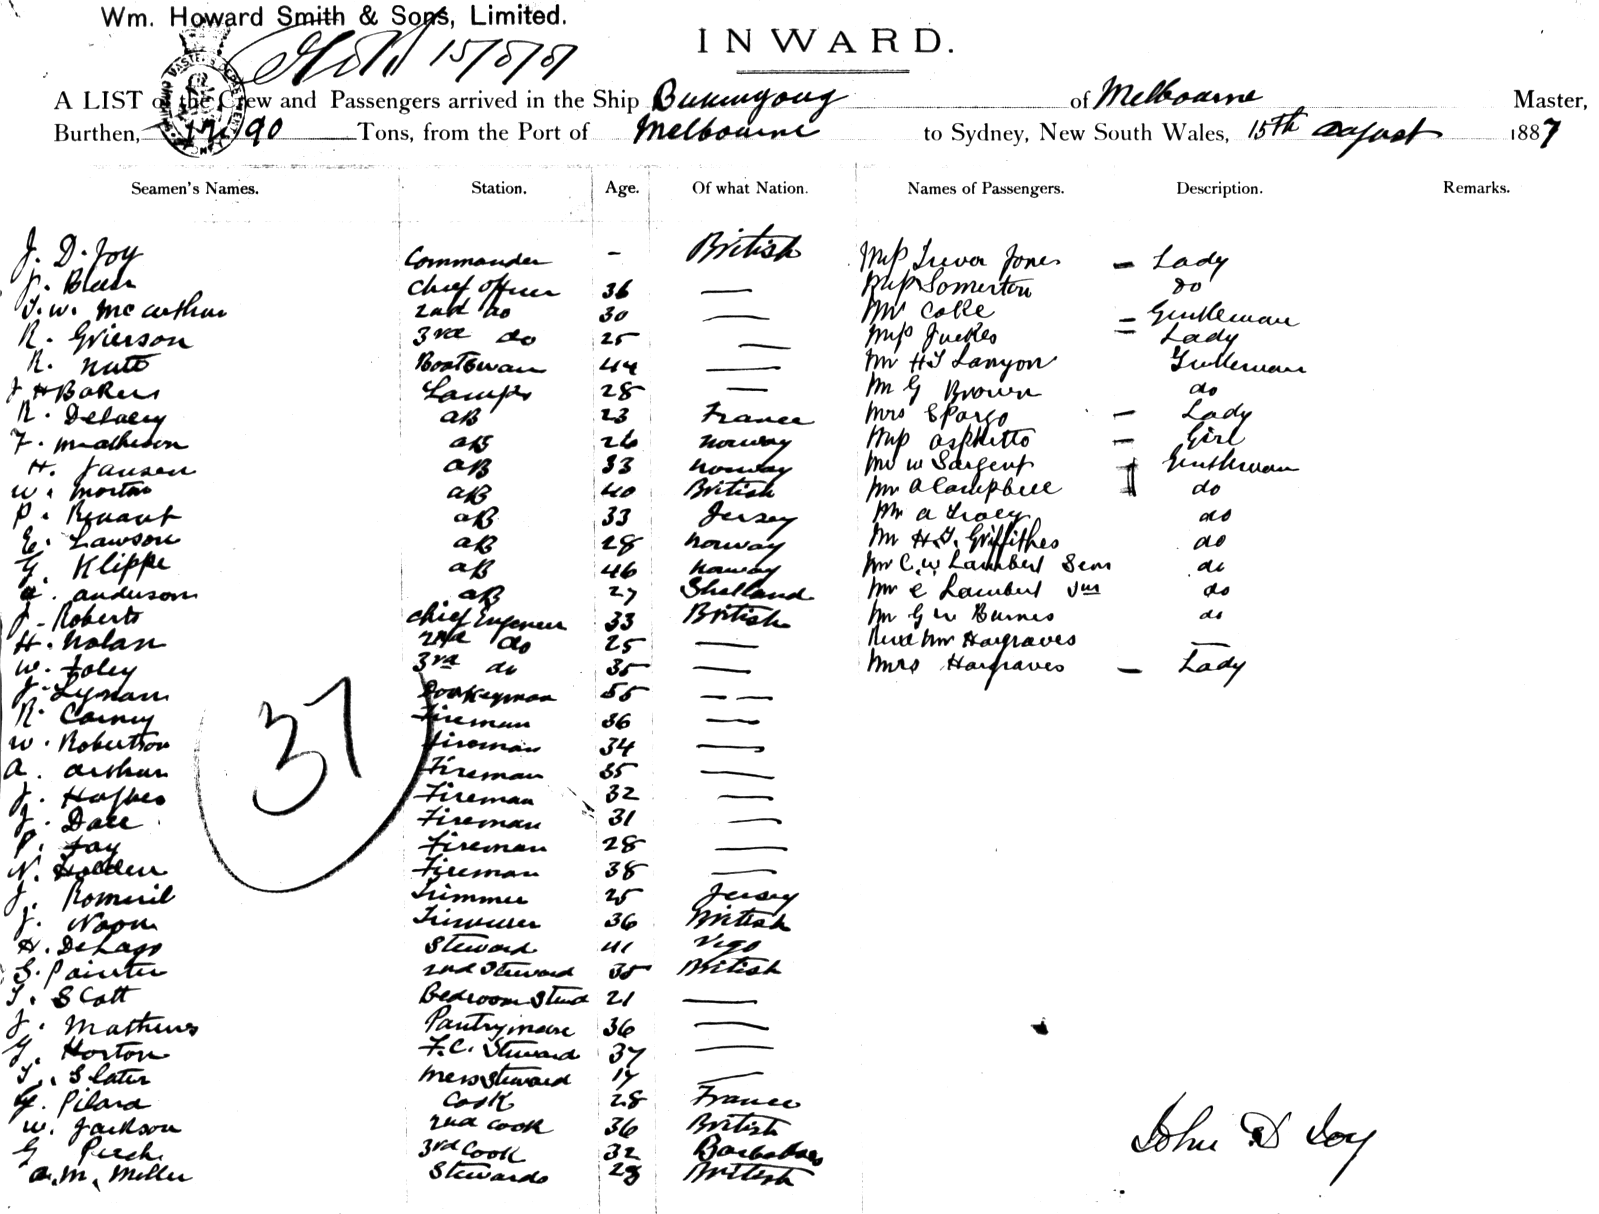 Wm. Howard Smith & Sons, Limited.
15/8/87
INWARD.
A LIST of the Crew and Passengers arrived in the Ship Buninyong of Melbourne Master,
Burthen, Tons, from the Port of Melbourne to Sydney, New South Wales, 15th August 1887
Seamen's Names. Station. Age. Of what Nation. Names of Passengers. Description. Remarks.
J. D. Joy Commander - British Miss Trevor Jones - Lady
J. Blair Chief Officer 36 — Miss Somerton do
T. W. McArthur 2nd do 30 — Mr Coke - Gentleman
R. Grierson 3rd do 25 — Miss Juckes - Lady
R. Nutt Boatswain 44 — Mr H T Lanyon Gentleman
J H Bakers Lamps 28 — Mr G Brown do
R. Delacey AB 23 France Mrs Spargo - Lady
F. Matheson AB 26 Norway Miss Asphetto - Girl
H. Jansen AB 33 Norway Mr W Sargent Gentleman
W. Morton AB 40 British Mr A Campbell do
P. Renault AB 33 Jersey Mr A Tracey do
E. Lawson AB 28 Norway Mr H.T. Griffithes do
G. Klippe AB 46 Norway Mr C. W. Lambert Senr do
A. Anderson AB 27 Shetland Mr C Lambert Jnr do
J. Roberts Chief Engineer 33 British Mr G W Barnes do
H. Nolan 2nd do 25 — Revd Mr Hargraves —
W. Foley 3rd do 35 — Mrs Hargraves - Lady
J. Lynam Donkeyman 55 — —
R. Carney Fireman 36 —
W. Robertson Fireman 34 —
37
A. Arthur Fireman 35 —
J. Hughes Fireman 32 —
J. Dale Fireman 31 —
P. Fay Fireman 28 —
N. Holden Fireman 38 —
J. Romeril Trimmer 25 Jersey
J. Noon Trimmer 36 British
H. DeLago Steward 41 Vigo
S. Painter 2nd Steward 35 British
T. Scott Bedroom Stwd 21 —
J. Mathews Pantryman 36 —
G. Horton F.C. Steward 37 —
T. Slater Mess Steward 17 —
G. Pilard Cook 28 France
W. Jackson 2nd Cook 36 British
G 3rd Cook 32 Barbadoes
A. M. Miller Stewards 28 British
John D Joy